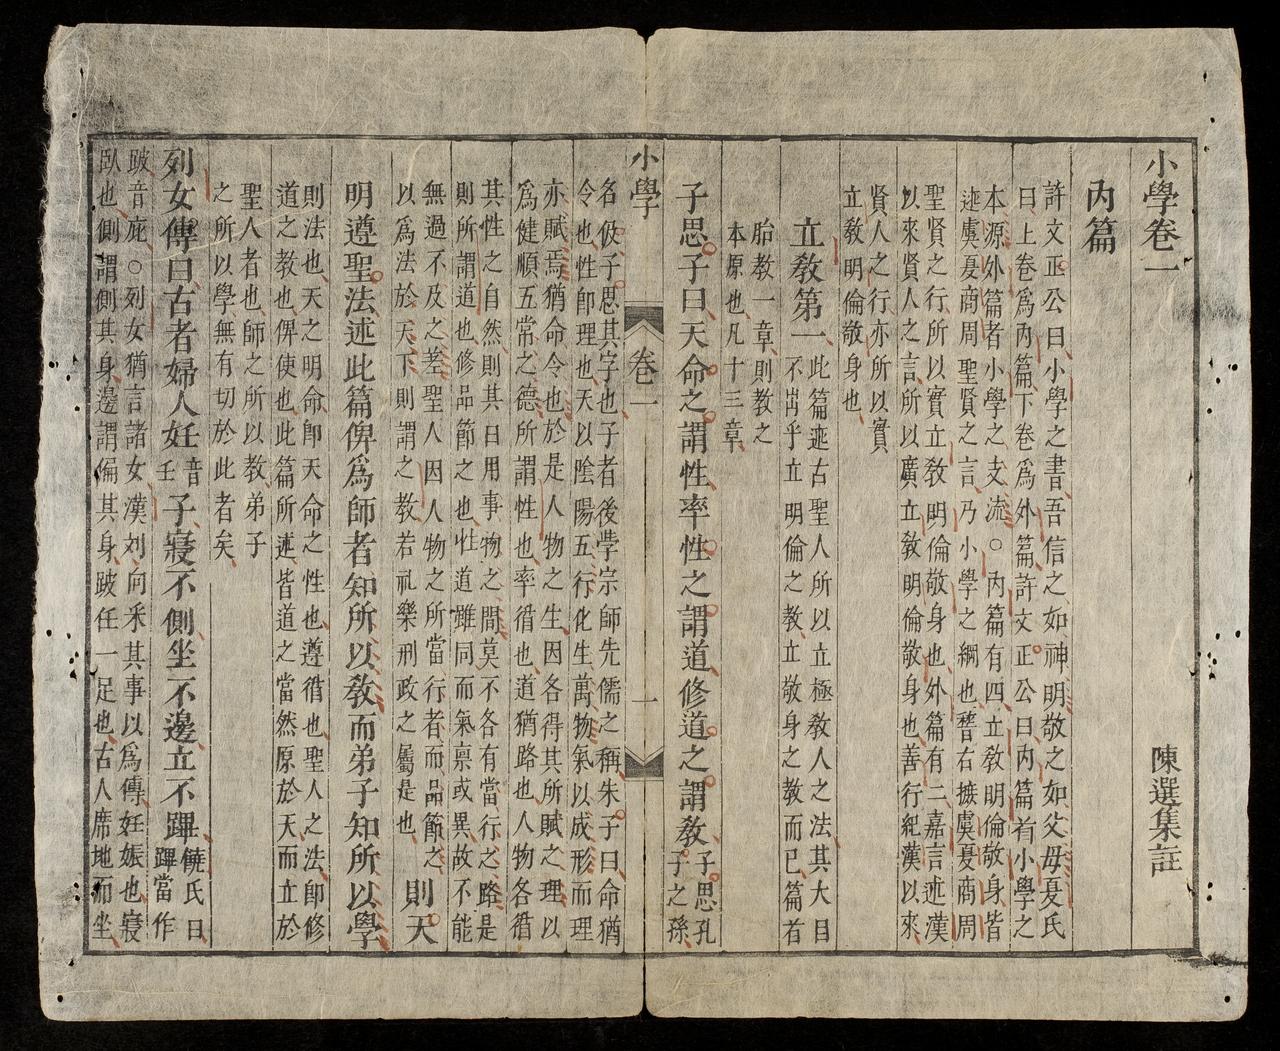 小學卷一
陳選集註
內篇
許文正公曰小學之書吾信之如神明敬之如父母夏氏
曰上卷爲內篇下卷爲外篇許文正公曰內篇者小學之
本源外篇者小學之支流○內篇有四立敎明倫敬身皆
述虞夏商周聖賢之言乃小學之綱也稽古摭虞夏商周
聖賢之行所以實立敎明倫敬身也外篇有二嘉言述漢
以來賢人之言所以廣立敎明倫敬身也善行紀漢以來
賢人之行亦所以實
立敎明倫敬身也
立敎第一
此篇述古聖人所以立極敎人之法其大目
不耑乎立明倫之敎立敬身之敎而已篇首
胎敎一章則敎之
本原也凡十三章
子思子曰天命之謂性率性之謂道修道之謂敎
子思孔
子之孫
小學
卷一
一
名伋子思其字也子者後學宗師先儒之稱朱子曰命猶
令也性卽理也天以陰陽五行化生萬物氣以成形而理
亦賦焉猶命令也於是人物之生因各得其所賦之理以
爲健順五常之德所謂性也率循也道猶路也人物各循
其性之自然則其日用事物之間莫不各有當行之路是
則所謂道也修品節之也性道雖同而氣稟或異故不能
無過不及之差聖人因人物之所當行者而品節之
以爲法於天下則謂之敎若禮樂刑政之屬是也
則天
明遵聖法述此篇俾爲師者知所以敎而弟子知所以學
則法也天之明命卽天命之性也遵循也聖人之法卽修
道之敎也俾使也此篇所述皆道之當然原於天而立於
聖人者也師之所以敎弟子
之所以學無有切於此者矣
列女傳曰古者婦人妊
音
壬
子寢不側坐不邊立不蹕
饒氏曰
蹕當作
跛音庇○列女猶言諸女漢刘向采其事以爲傳妊娠也寢
臥也側謂側其身邊謂偏其身跛任一足也古人席地而坐